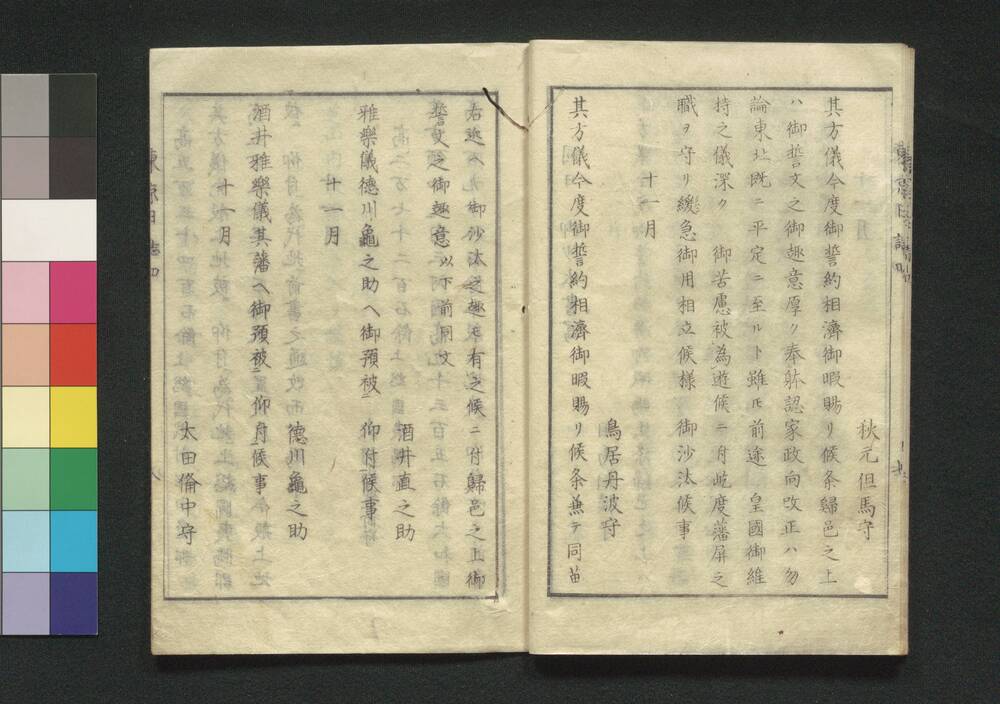 秋元但馬守
其方儀今度御誓約相濟御暇賜リ候条歸邑之上
ハ御誓文之御趣意厚ク奉躰認家政向改正ハ勿
論東北既ニ平定ニ至ルト雖モ前途　皇國御維
持之儀深ク　御苦慮被為遊候ニ付屹度藩屏之
職ヲ守リ緩急御用相立候様　御沙汰候事
十一月
鳥居丹波守
其方儀今度御誓約相濟御暇賜リ候条兼テ同苗
右近へ御沙汰之趣モ有之候ニ付歸邑之上御
誓文之御趣意以下前同文
酒井直之助
雅樂儀德川龜之助へ御預被　仰付候事
十一月
德川龜之助
酒井雅樂儀其藩へ御預被　仰付候事
十一月
太田備中守